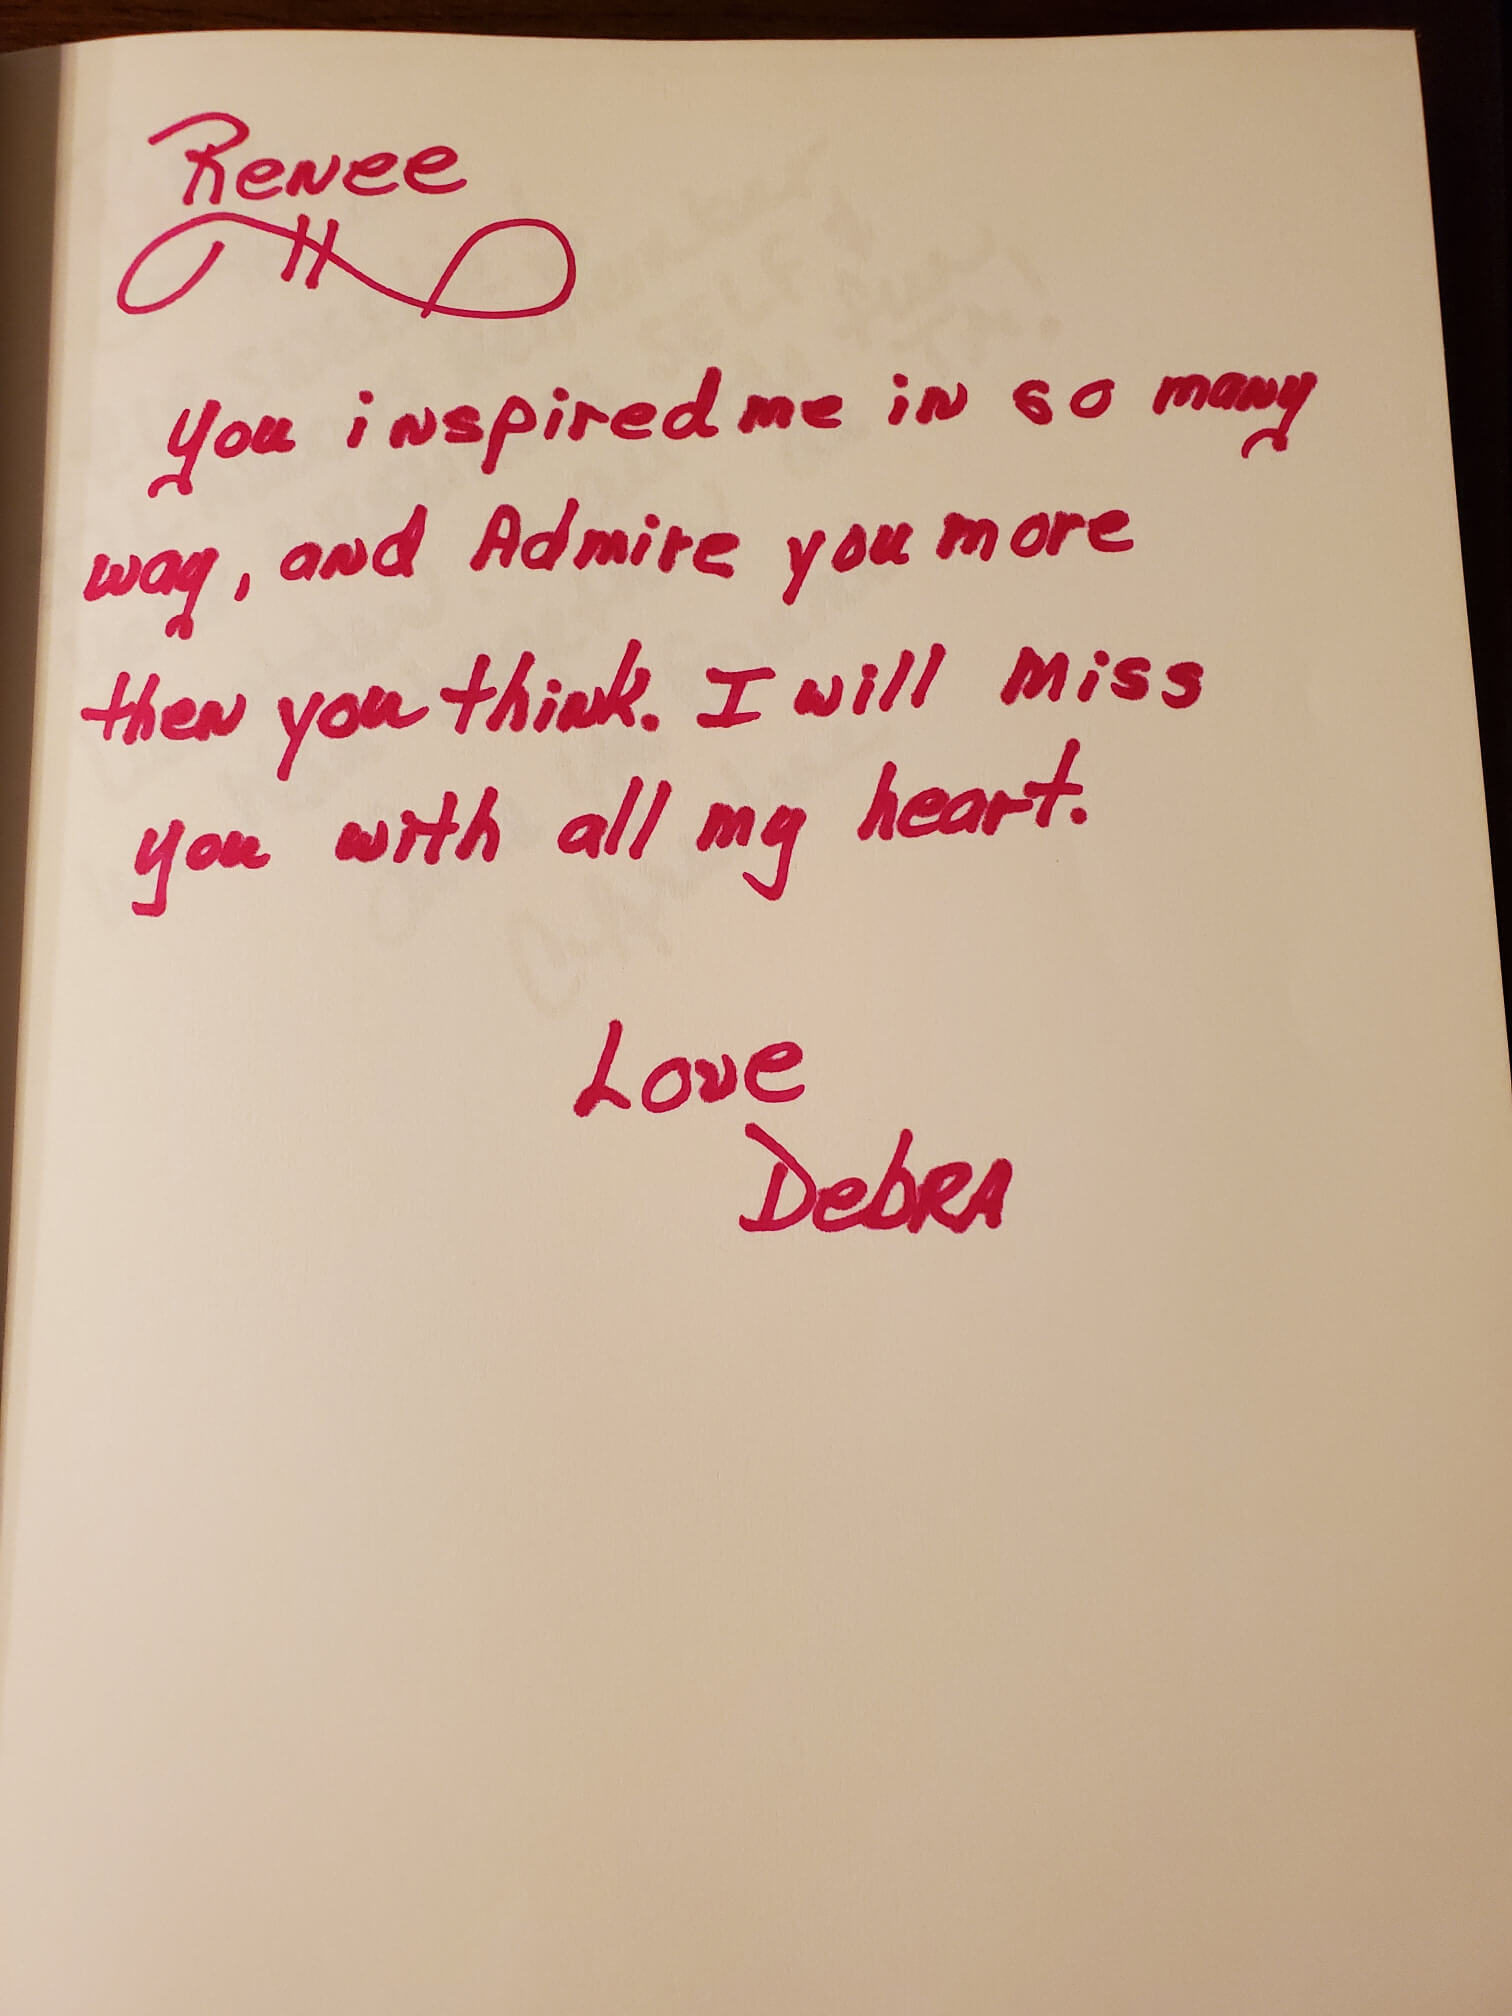 Renee
you inspired me in so many
way, and Admire you more
then you think. I will miss
you with all my heart.
Love
DebRA